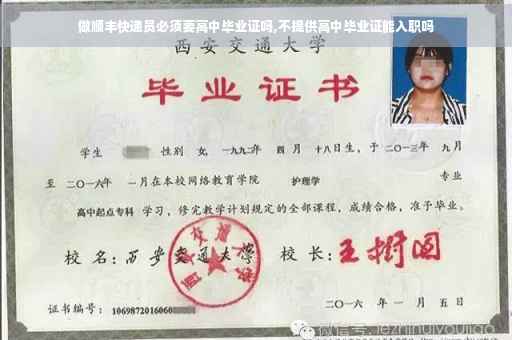 做顺丰快递员必须要高中毕业证吗,不提供高中毕业证能入职吗
西安交通大学
毕业证书
学生 性别 女, 一九九二年 四月 十八日生, 于 二〇一三年 九月
至 二〇一六年 一月在本校网络教育学院 护理学 专业
高中起点专科 学习, 修完教学计划规定的全部课程, 成绩合格, 准予毕业。
校名: 西安交通大学 校长: 王树国
西安交通大学
证书编号: 1069872016060
二〇一六 年 一 月 五 日
微信号: jiezhinuiyoujiao